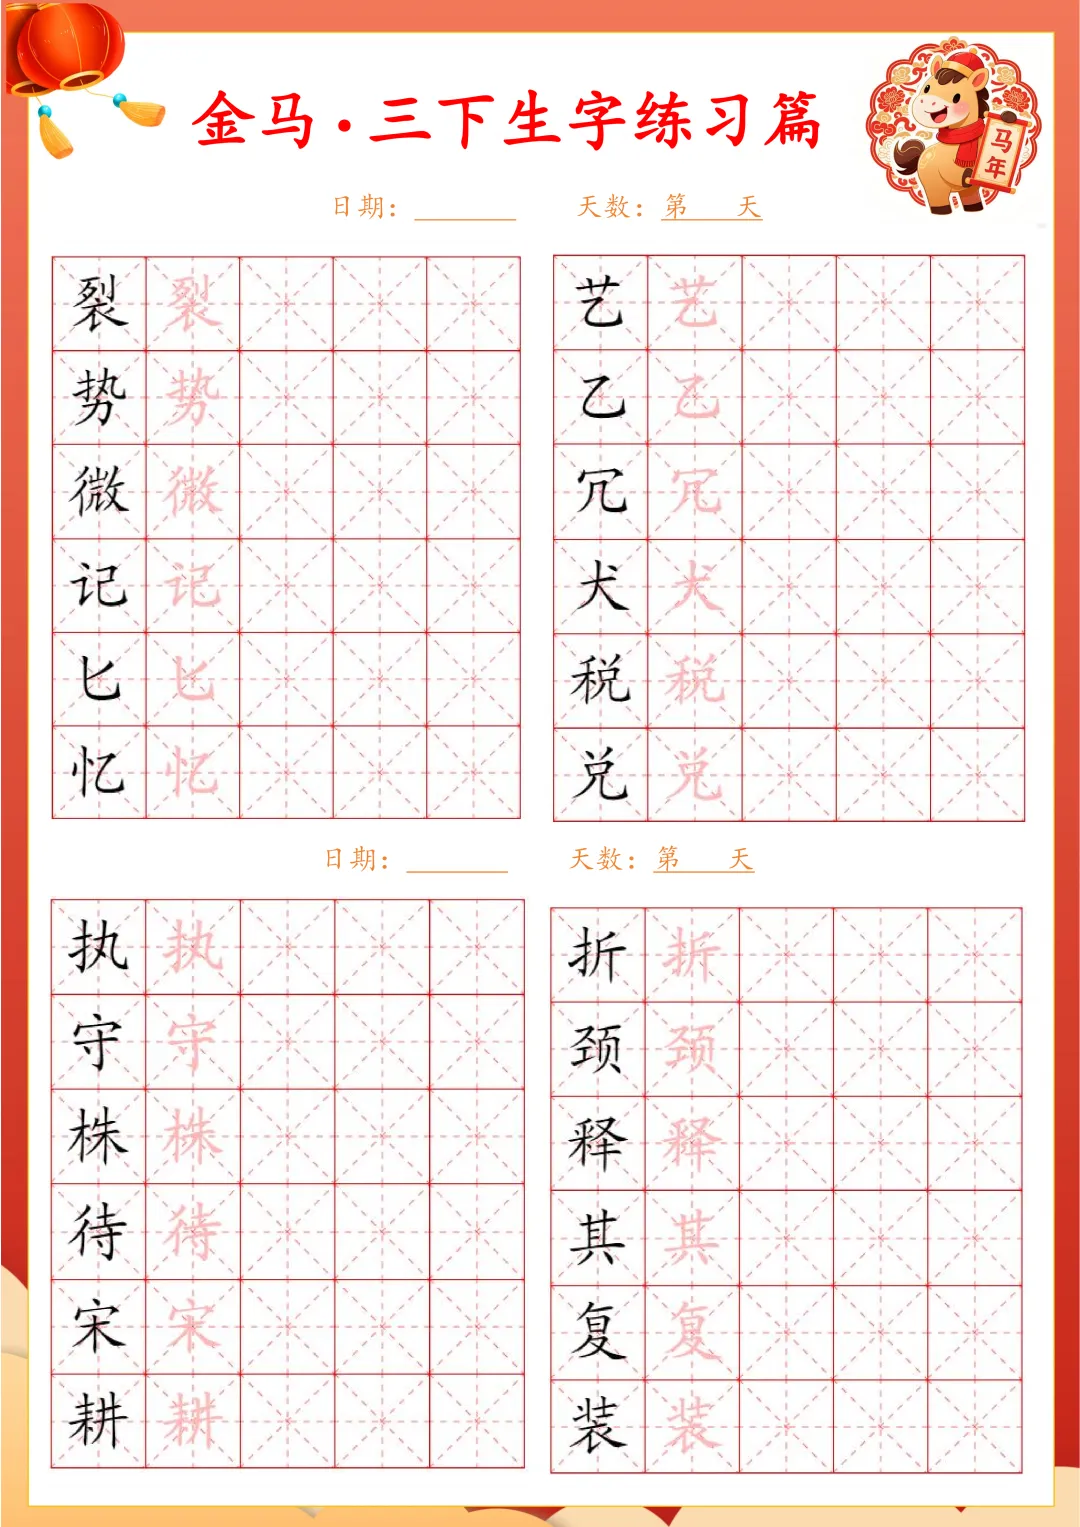 金马·三下生字练习篇
马年
日期：_______ 天数：第 天
裂 裂
势 势
微 微
记 记
匕 匕
忆 忆
艺 艺
乙 乙
冗 冗
犬 犬
税 税
兑 兑
日期：_______ 天数：第 天
执 执
守 守
株 株
待 待
宋 宋
耕 耕
折 折
颈 颈
释 释
其 其
复 复
装 装